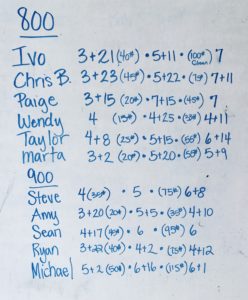 800
Ivo 3+21(40#) • 5+11 • (100# Clean) 7
Chris B. 3+23(45#) • 5+22 • (75#) 7+11
Paige 3+15 (20#) • 7+15 • (45#) 7
Wendy 4 (15#) • 4+25 • (35#) 4+11
Taylor 4+8 (25#) • 5+15 • (55#) 6+14
marta 3+2 (20#) • 5+20 • (50#) 5+9
900
Steve 4(35#) • 5 • (75#) 6+8
Amy 3+20(20#) • 5+5 • (35#) 4+10
Sean 4+17(45#) • 6 • (95#) 6
Ryan 3+22(40#) • 4+2 • (75#) 4+12
Michael 5+2(50#) • 6+16 • (115#) 6+1